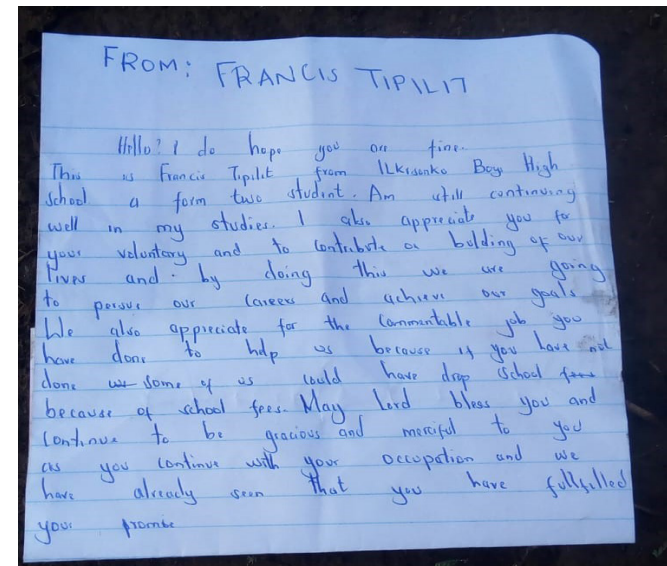 FROM: FRANCIS TIPILIT
Hello? I do hope you are fine.
This is Francis Tipilit from ILkisonko Boys High
school a form two student. Am still continuing
well in my studies. I also appreciate you for
your voluntary and to contribute on bulding of our
lives and. by doing this we are going
to persue our careers and achieve our goals
We also appreciate for the commentable job you
have done to help us because if you have not
done us some of us could have drop school fees
because of school fees. May Lord bless you and
continue to be gracious and merciful to you
as you continue with your occupation and we
have already seen that you have fullfilled
your promise